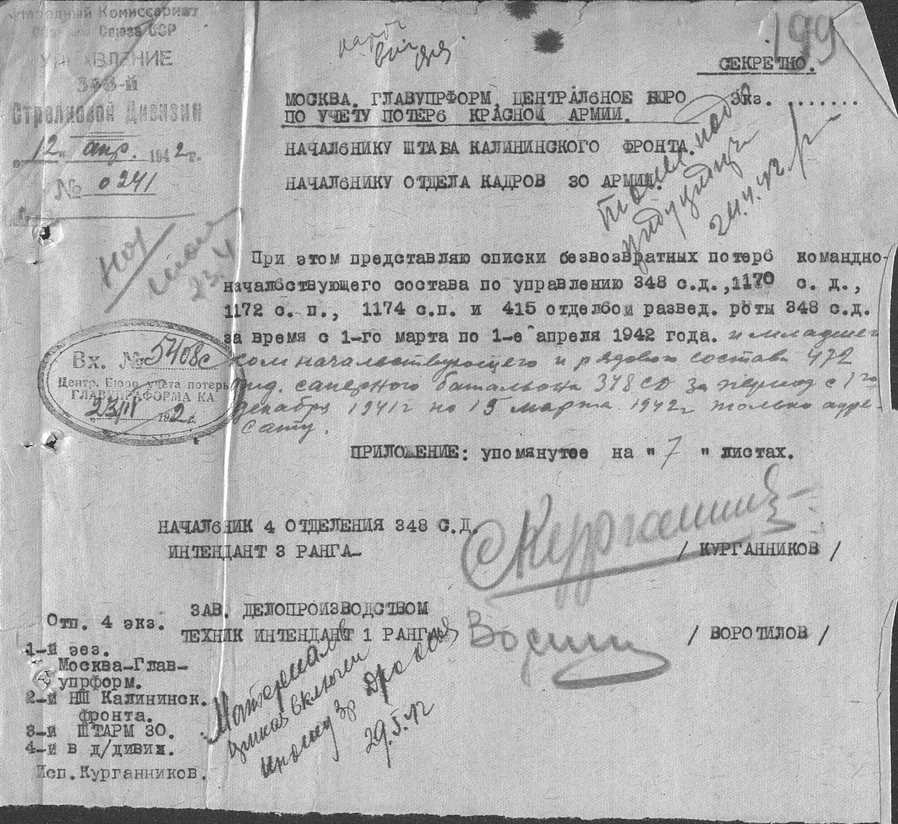 Народный Комиссариат
Союза ССР
УПРАВЛЕНИЕ
348-й
Стрелковой Дивизии
12 апр. 1942 г.
№ 0241
199
СЕКРЕТНО.
МОСКВА. ГЛАВУПРФОРМ, ЦЕНТРАЛЬНОЕ БЮРО Экз. .......
ПО УЧЕТУ ПОТЕРЬ КРАСНОЙ АРМИИ.
НАЧАЛЬНИКУ ШТАБА КАЛИНИНСКОГО ФРОНТА.
НАЧАЛЬНИКУ ОТДЕЛА КАДРОВ 30 АРМИИ.
24.4.42
23.4
При этом представляю списки безвозвратных потерь командно-
началбствующего состава по управлению 348 с.д.,1170 с. д.,
1172 с. п., 1174 с.п. и 415 отделбой развед. роты 348 с.д.
за время с 1-го марта по 1-е апреля 1942 года. и младшего
ком началствующего и рядового состава 472
отд. саперного батальона 348 СД за период с 1го
декабря 1941г по 15 марта 1942г только адре-
сату.
Вх. № 5408с
Центр. Бюро учета потерь
ГЛАВУПРАФОРМА КА
23/IV 1942 г.
ПРИЛОЖЕНИЕ: упомянутое на "7" листах.
НАЧАЛЬНИК 4 ОТДЕЛЕНИЯ 348 С.Д.
ИНТЕНДАНТ 3 РАНГА-
/ КУРГАННИКОВ /
ЗАВ. ДЕЛОПРОИЗВОДСТВОМ
ТЕХНИК ИНТЕНДАНТ 1 РАНГА
/ ВОРОТИЛОВ /
Отп. 4 экз.
1-й эез.
Москва-Глав-
упрформ.
2-й НШ Калининск.
фронта.
3-й ШТАРМ 30.
4-й в д/дивиз.
Исп.Курганников.
Материал
29.5.42